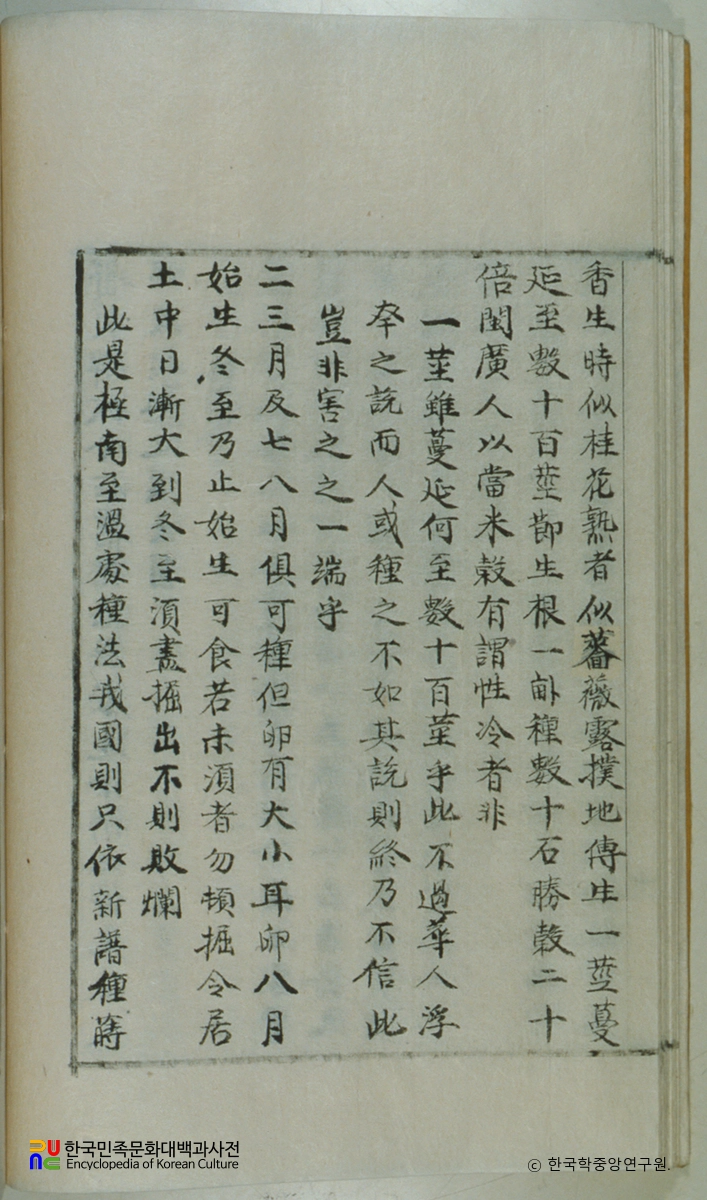 香生時似桂花熟者似薔薇露撲地傳生一莖蔓
延至數十百莖節生根一畝種數十石勝穀二十
倍閩廣人以當米穀有謂性冷者非
一莖雖蔓延何至數十百莖乎此不過華人浮
夲之說而人或種之不如其說則終乃不信此
豈非害之之一端乎
二三月及七八月俱可種但卵有大小耳卵八月
始生冬至乃止始生可食若未湏者勿頓掘令居
土中日漸大到冬至湏盡掘出不則敗爛
此是極南至溫處種法我國則只依新譜種蒔
한국민족문화대백과사전
Encyclopedia of Korean Culture
ⓒ 한국학중앙연구원.